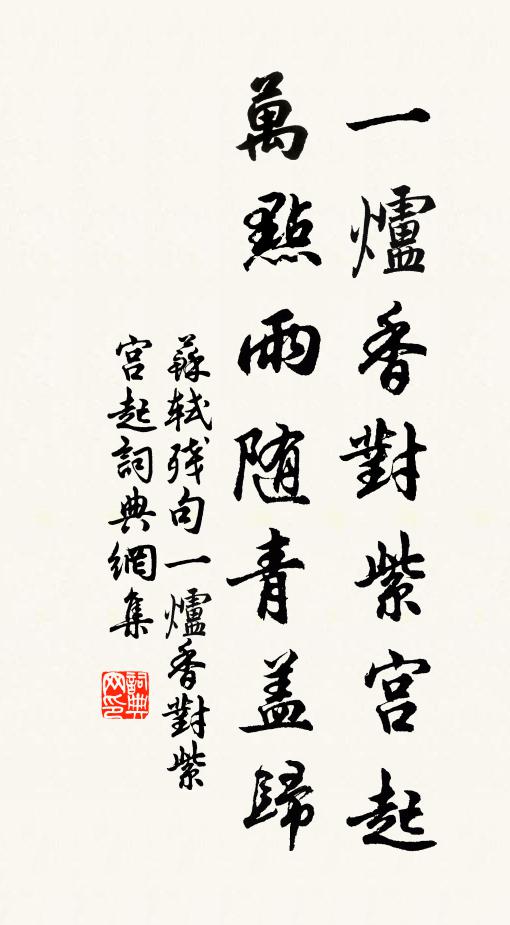 一爐香對紫宮起
萬點雨隨青蓋歸
蘇軾殘句一爐香對紫
宮起詞典網集
詞典网印